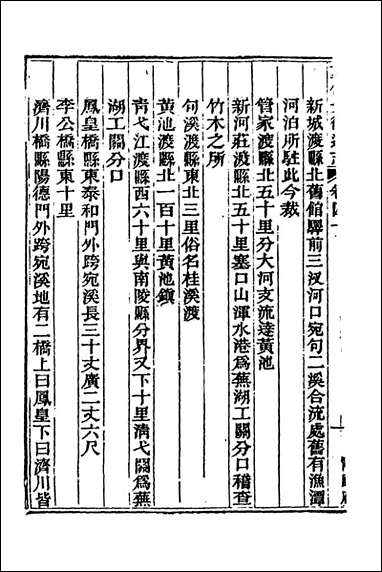 新城渡縣北舊館驛前三汊河口宛句二溪合流處舊有漁潭
河泊所駐此今裁
管家渡縣北五十里分大河支流達黃池
新河莊渡縣北五十里塞口山渾水港爲蕪湖工關分口稽查
竹木之所
句溪渡縣東北三里俗名桂溪渡
黃池渡縣北一百十里黃池鎮
靑弋江渡縣西六十里與南陵縣分界又下十里清弋關爲蕪
湖工關分口
鳳皇橋縣東泰和門外跨宛溪長三十丈廣二丈六尺
李公橋縣東十里
濟川橋縣陽德門外跨宛溪地有二橋上曰鳳皇下曰濟川皆